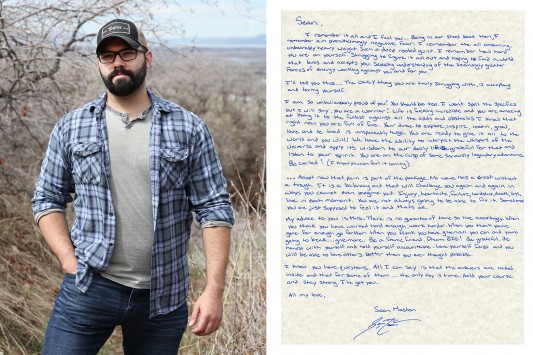 Sean,
I remember it all and I feel you... Being in our shoes back then, I
remember an overwhelmingly negative fear. I remember the all consuming,
unbearably heavy weight. Such a deep rooted grit. I remember how hard
you are on yourself. Struggling to figure it all out and hoping to find a world
that loves and accepts you. Seeking understanding of the seemingly greater
forces of energy working against you and for you.
I'll tell you this... The only thing you are truly struggling with, is accepting
and loving yourself.
I am so unbelievably proud of you! You should be too. I won't spoil the specifics
but I will say, you are a warrior! Life is fucking incredible and you are amazing
at living it to the fullest against all the odds and obstacles. I know that
right now you are full of fire. Your drive to explore, inspire, learn, grow,
love, and be loved is unspeakably huge. You are ready to give it all to the
world and you will! We have the ability to interpret the whispers of the
universe and apply its wisdom to our daily life. Be grateful for that and
listen to your spirit. You are on the cusp of some seriously legendary adventures.
Be excited!
... Accept now that pain is part of the package. No wave has a crest without
a trough. It is a balancing act that will challenge you again and again in
ways you cannot even imagine yet. Injury, heartache, failure, hardship, death, loss,
love, in each moment. You are not always going to be able to fix it. Sometimes
you are just supposed to feel it and that's ok...
My advice to you is this: There is no guarantee of time so live accordingly. When
you think you have worked hard enough, work harder. When you think you've
gone far enough go further. When you think you have given all you can and you're
going to break... give more. Be a Dream Big! Be grateful. Be
honest with yourself and hold yourself accountable. Love yourself first and you
will be able to love others better than you ever thought possible.
I know you have questions. All I can say is that the answers are
inside and that for some of them... the only key is time. Hold your course
and stay strong. I've got you.
All my love,
Sean